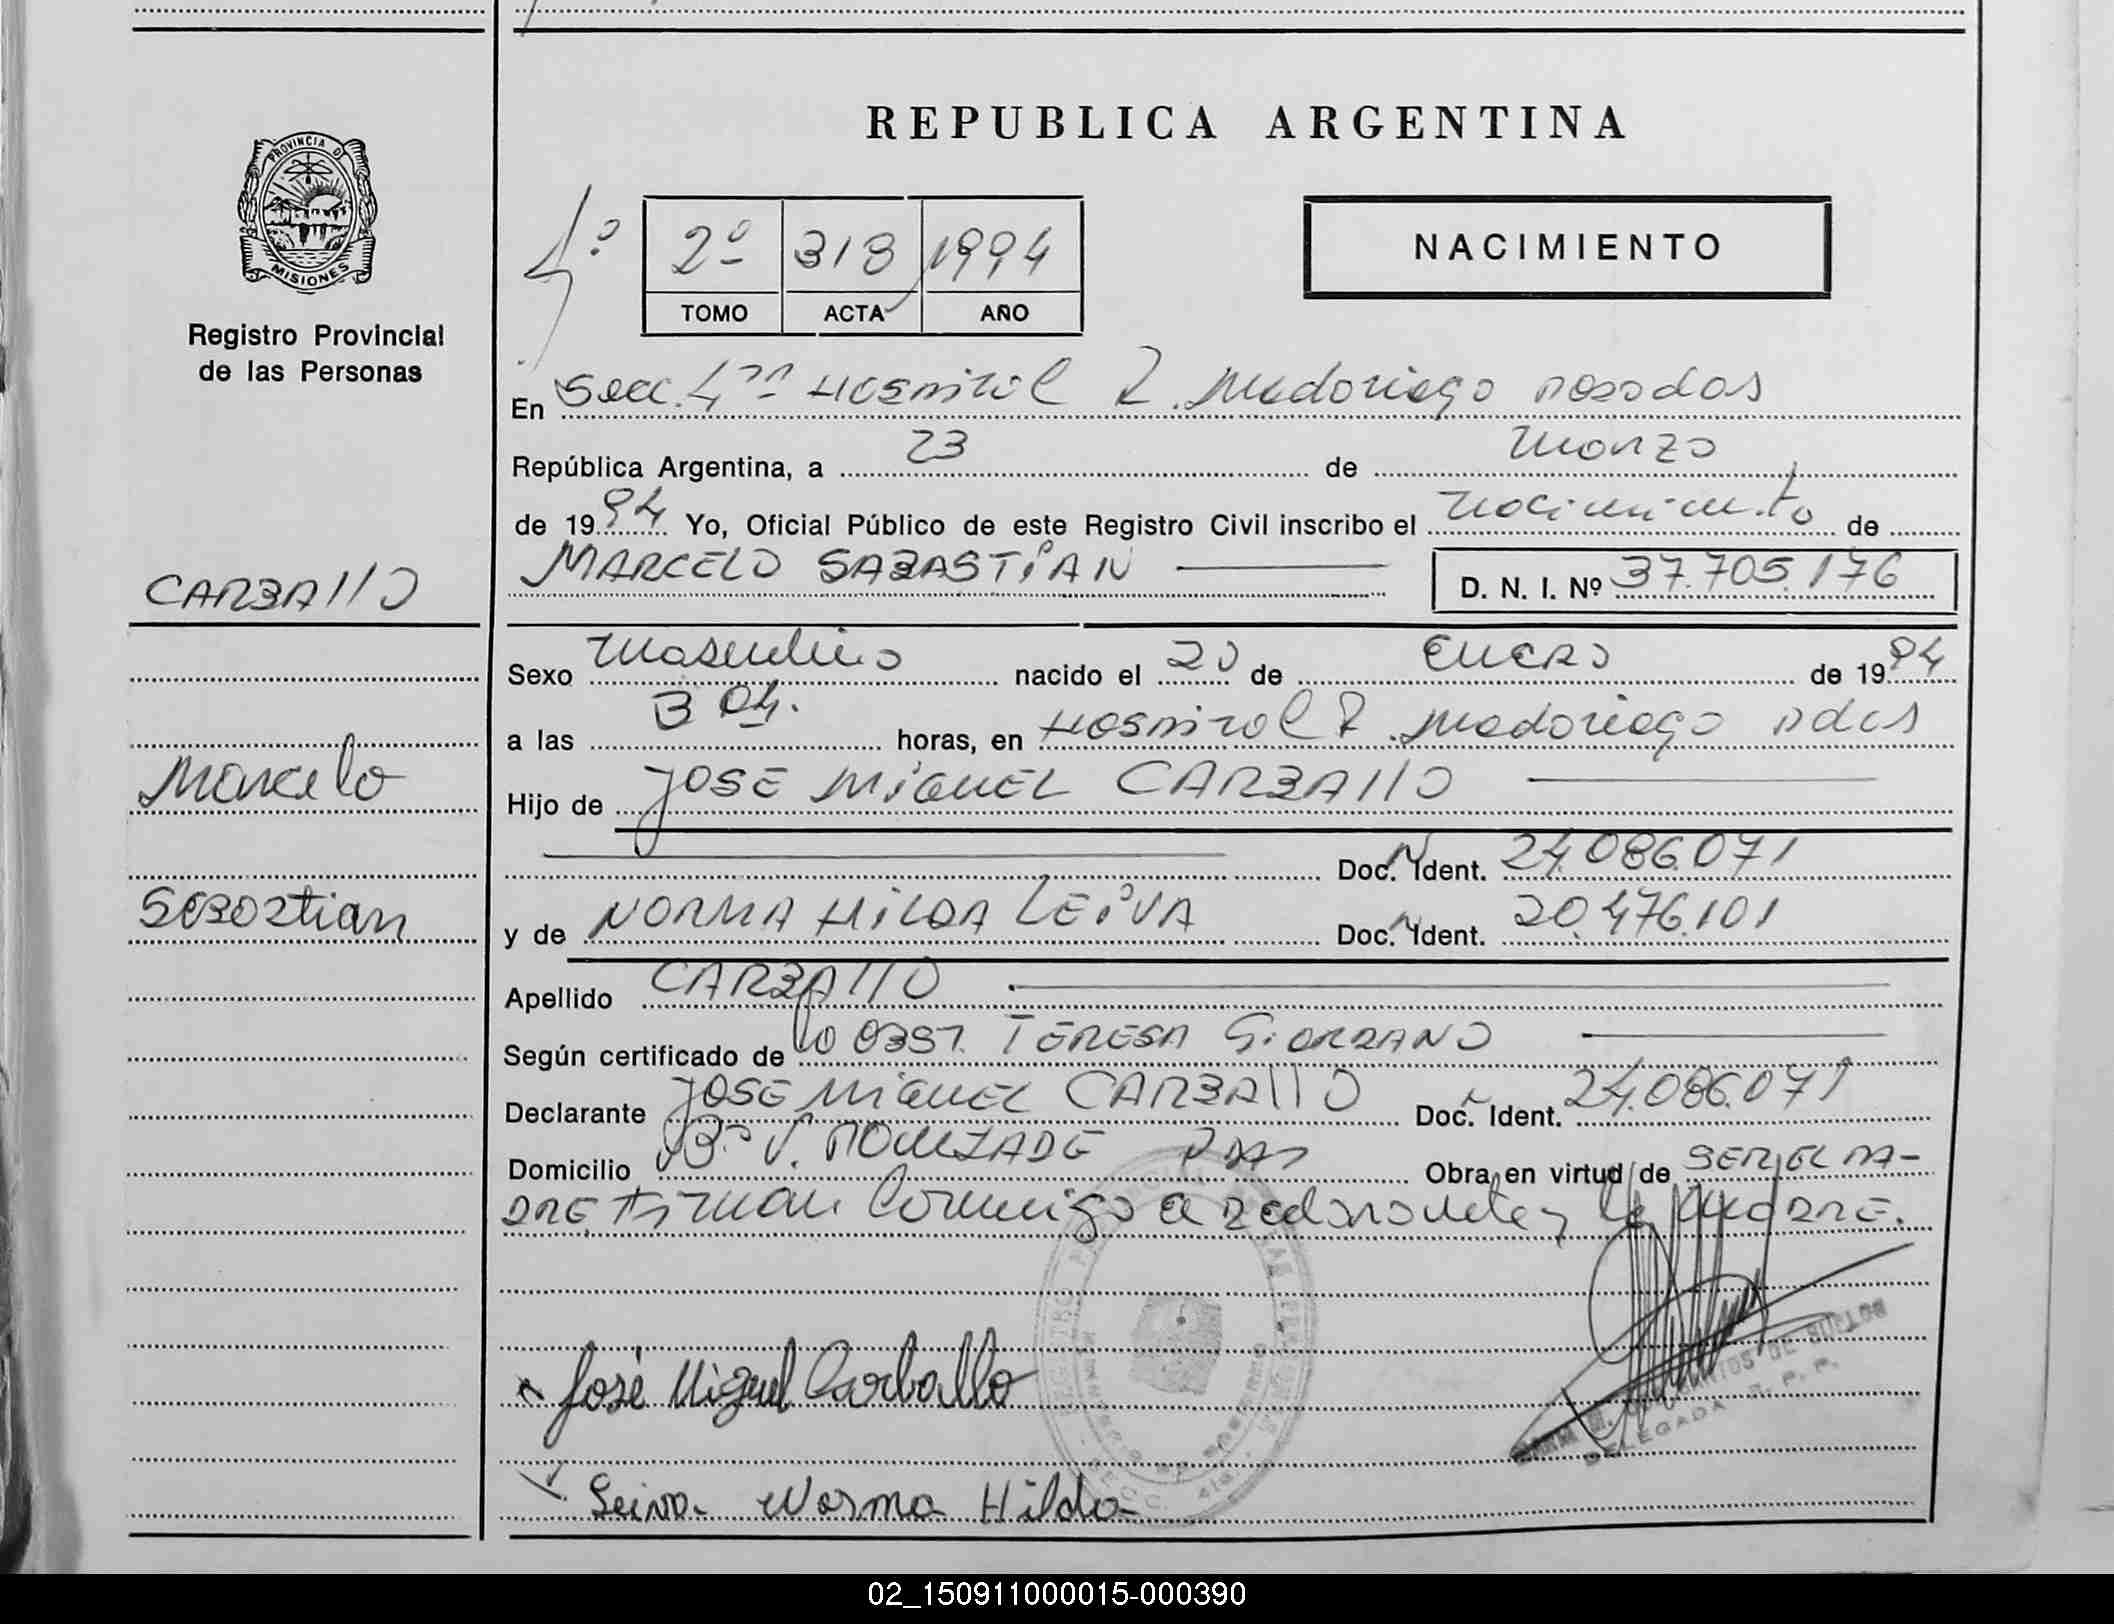 REPUBLICA ARGENTINA
PROVINCIA D
MISIONES
Registro Provincial
de las Personas
4º 2º 318 1994
TOMO ACTA AÑO
NACIMIENTO
En Secc. 4ta Hospital R. Madariaga Posadas
República Argentina, a 23 de Marzo
de 1994 Yo, Oficial Público de este Registro Civil inscribo el nacimiento de
CARBALLO
MARCELO SABASTIAN
D. N. I. Nº 37.705.176
Sexo Masculino nacido el 20 de Enero de 1994
a las 3 04. horas, en Hospital R. Madariaga Pdas
Marcelo
Hijo de JOSE MIGUEL CARBALLO
Doc. Ident. 24.086.071
Sebastian
y de NORMA HILDA LEIVA Doc. Ident. 20.476.101
Apellido CARBALLO
Según certificado de la OBST. TERESA GIORDANO
Declarante JOSE MIGUEL CARBALLO Doc. Ident. 24.086.071
Domicilio Bº V. PDAS Obra en virtud de SER EL PA-
DRE. Firman Conmigo el declarante y la MADRE.
José Miguel Carballo
DELEGADA R. P. P.
Leiva Norma Hilda
02_150911000015-000390